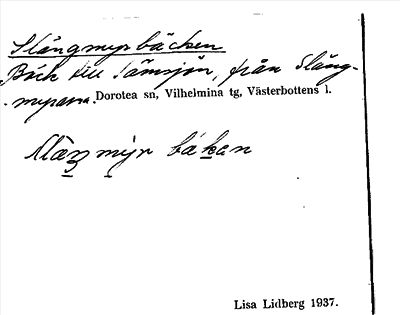 Slångmyrbäcken
Bäck till Sämsjön, från Slång-
-myrarna. Dorotea sn, Vilhelmina tg, Västerbottens l.
bákan
Lisa Lidberg 1937.